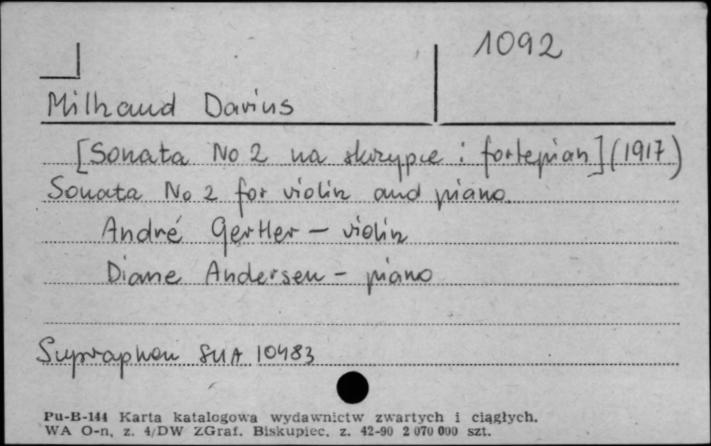 1092
Milhaud Darius
[Sonata No 2 na skrzypce i fortepian] (1917)
Sonata No 2 for violin and piano
André Gertler – violin
Diane Andersen – piano
Supraphon SUA 10483
Pu-B-144 Karta katalogowa wydawnictw zwartych i ciągłych.
WA O-n, z. 4/DW ZGraf. Biskupiec, z. 42-90 2 070 000 szt.